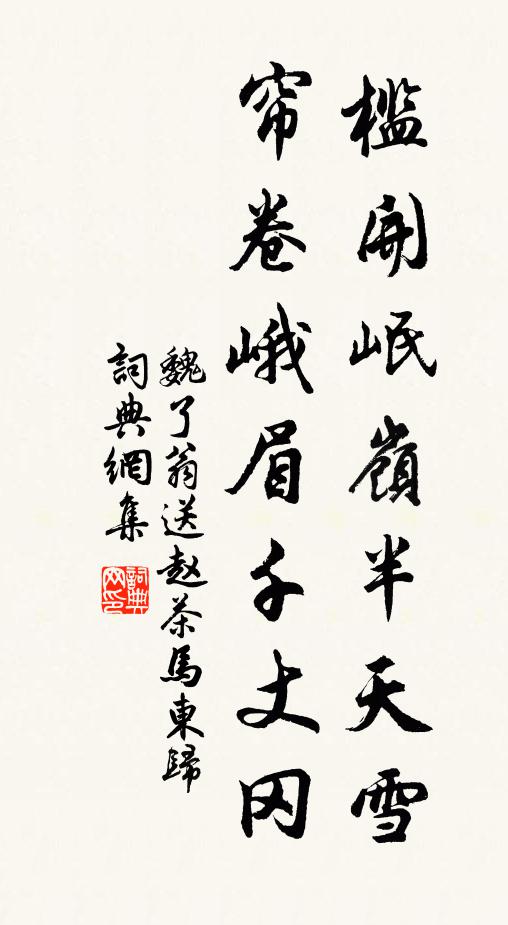 檻開岷嶺半天雪
帘卷峨眉千丈冈
魏了翁送赵茶馬東歸
詞典網集
詞典网印